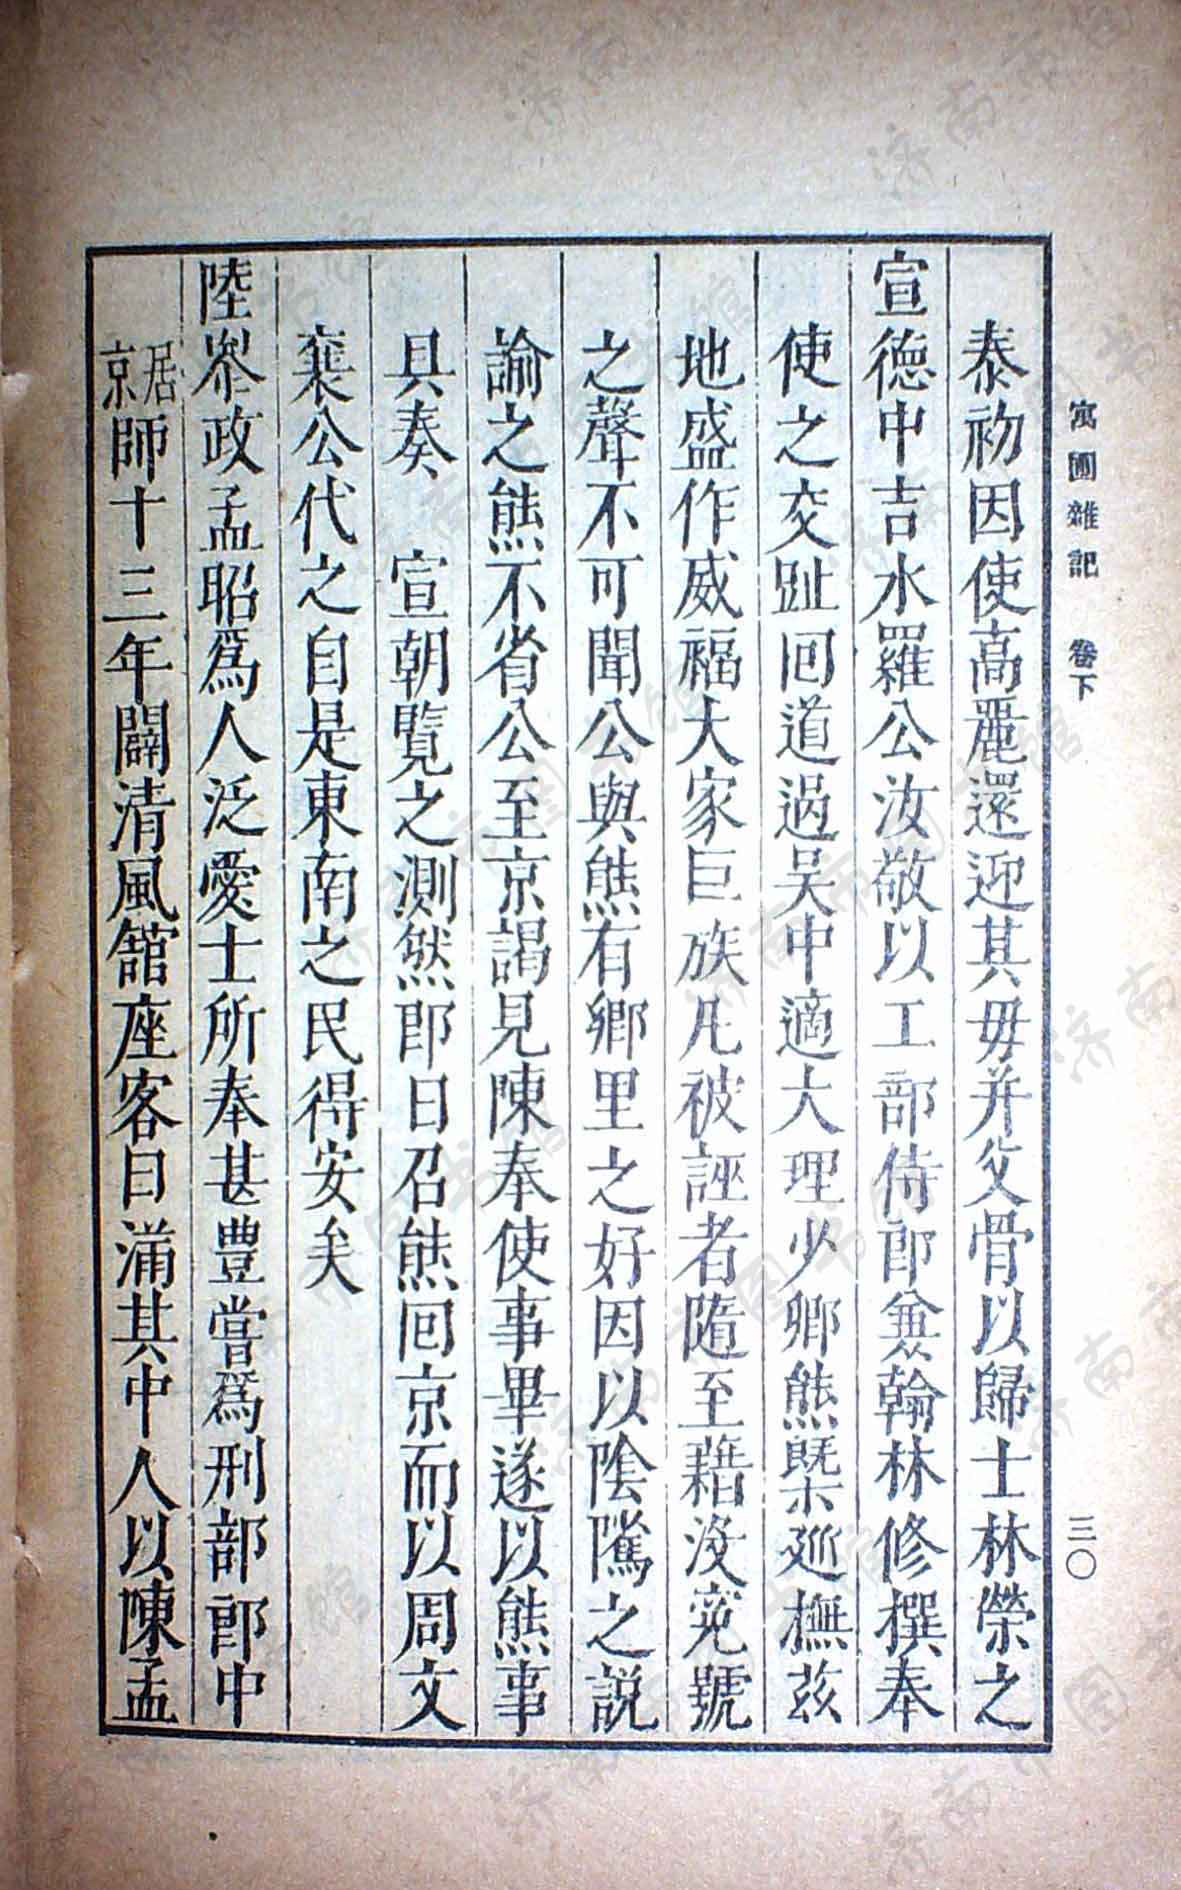 寓圃雜記 卷下 三〇
泰初因使高麗還迎其母并父骨以歸士林榮之
宣德中吉水羅公汝敬以工部侍郎兼翰林修撰奉
使之交趾回道過吳中適大理少卿熊槩廵撫茲
地盛作威福大家巨族凡被誣者隨至藉沒寃號
之聲不可聞公與熊有鄉里之好因以陰隲之説
諭之熊不省公至京謁見陳奉使事畢遂以熊事
具奏 宣朝覽之測然即日召熊回京而以周文
襄公代之自是東南之民得安矣
陸叅政孟昭爲人泛愛士所奉甚豊嘗爲刑部郎中
居京師十三年闢清風舘座客日滿其中人以陳孟
济南市图书馆